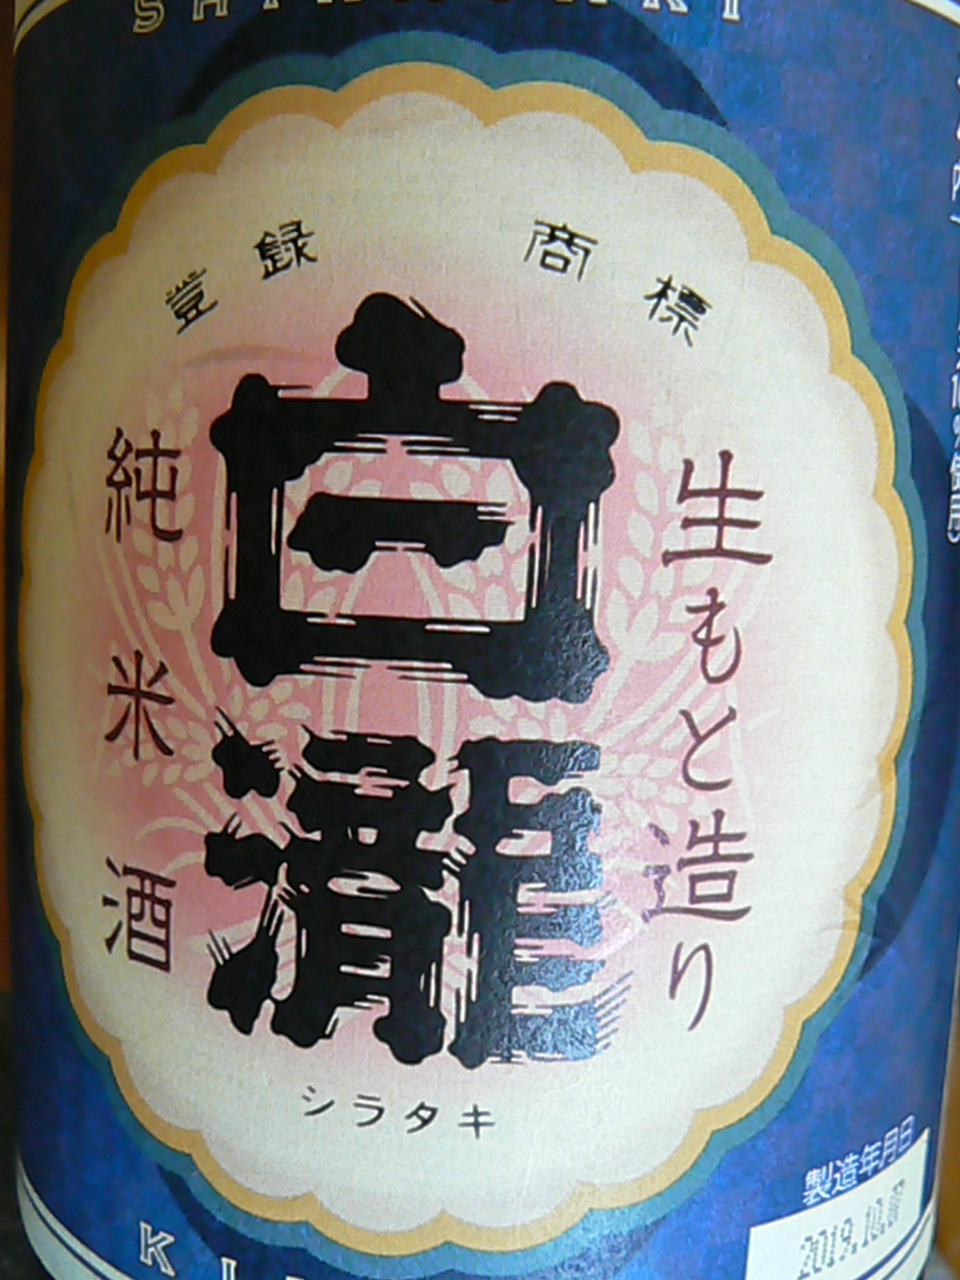 登録 商標
生もと造り
白瀧
純米酒
シラタキ
製造年月日
2019.10.07